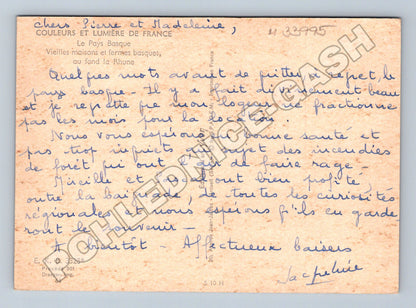 chers Pierre et Madeleine,
n 33995
COULEURS ET LUMIÈRE DE FRANCE
Le Pays Basque
Vieilles maisons et fermes basques,
au fond la Rhune
Quelques mots avant de quitter à regret, le
pays basque. Il y a fait divinement beau
et je regrette que mon logeur ne fractionne
pas les mois pour la location.
Nous vous espérons bonne santé et
pas trop inquiets au sujet des incendies
de forêt qui ont l'air de faire rage.
Mireille et ont bien profité,
outre la baignade, de toutes les curiosités
régionales et nous espérons qu'ils en garde
ront le souvenir _
A bientôt - Affectueux baisers
Jacqueline
S 10 H
PCHLEDNICE.CASH